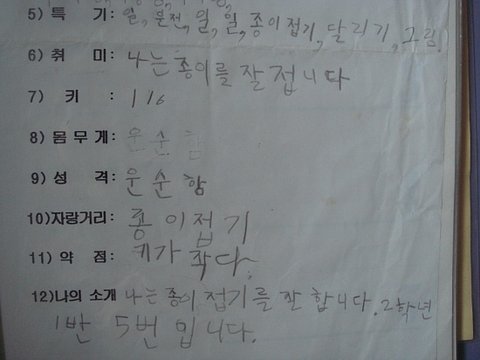 5) 특 기: 일, 운전, 일, 일, 종이접기, 달리기, 그림.
6) 취 미: 나는 종이를 잘 접니다
7) 키 : 116
8) 몸 무 게: 운 순 함
9) 성 격: 운 순 함
10)자랑거리: 종 이 접 기
11) 약 점: 키가 작다.
12)나의 소개 나는 종이 접기를 잘 합니다. 2학년
1반 5번 입니다.